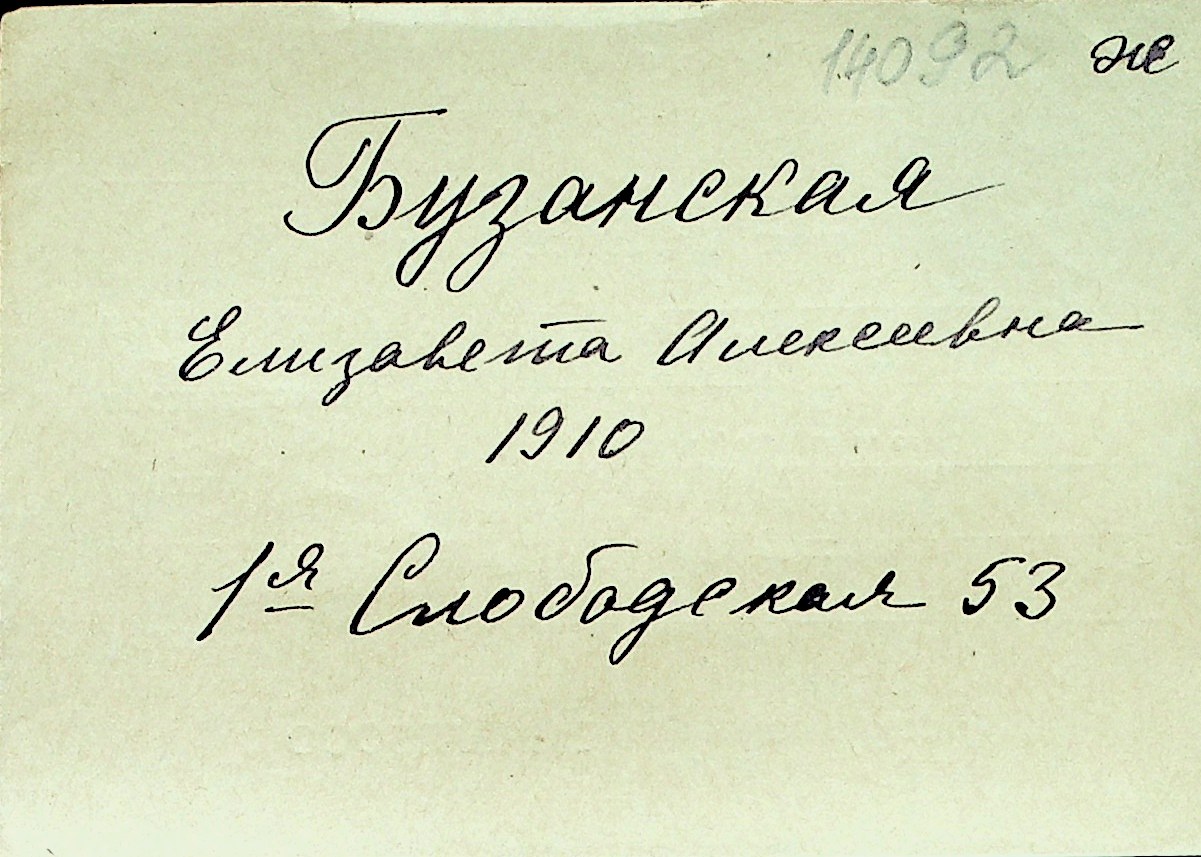 14092 ж
Бузанская
Елизавета Алексеевна
1910
1я Слободская 53